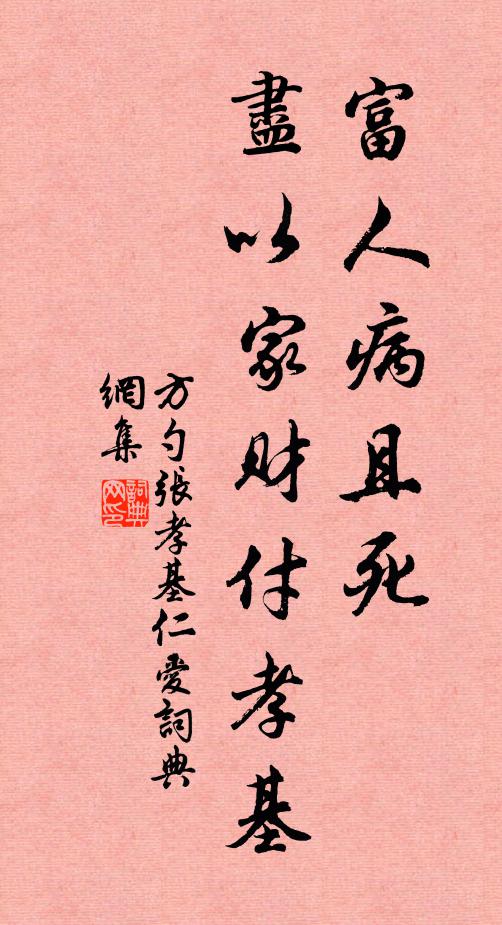 富人病且死
盡以家財付孝基
方勺張孝基仁愛詞典
網集
詞典網印